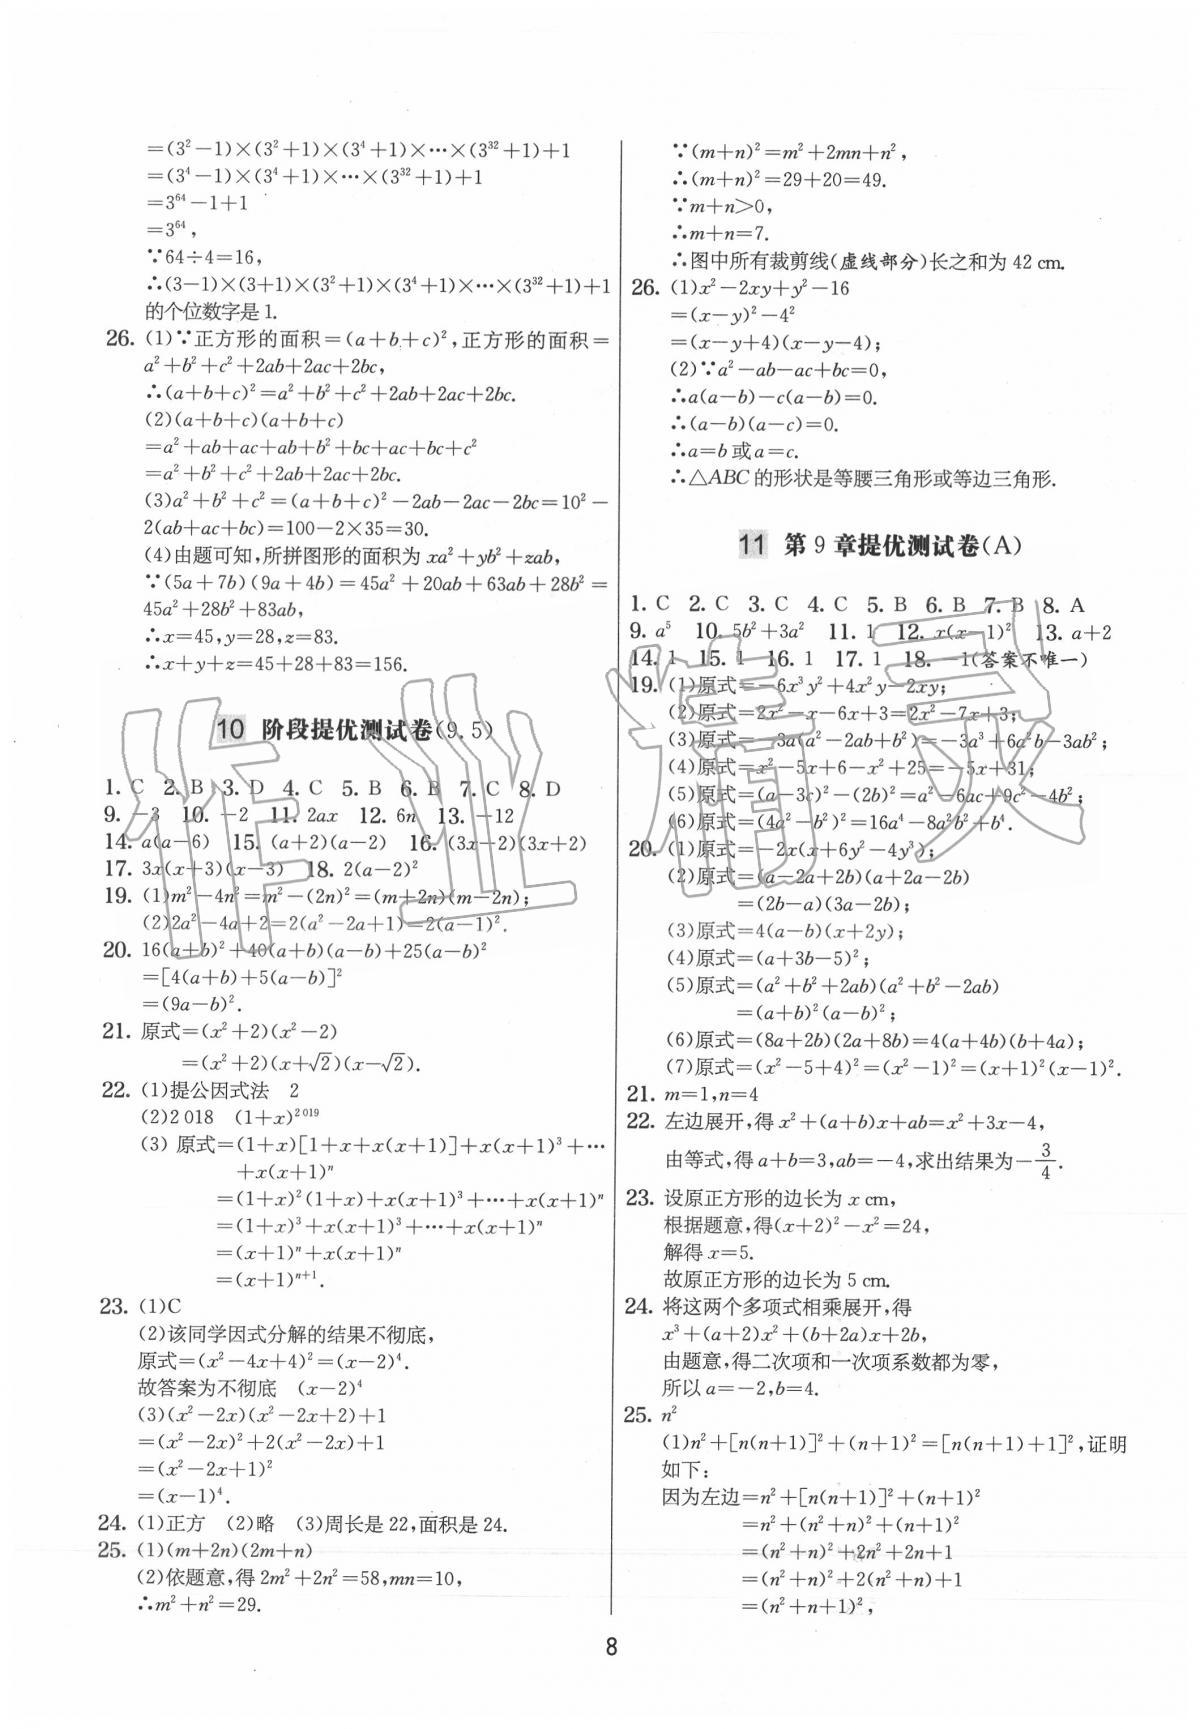 =(3²-1)×(3²+1)×(3⁴+1)×…×(3³²+1)+1
=(3⁴-1)×(3⁴+1)×…×(3³²+1)+1
=3⁶⁴-1+1
=3⁶⁴,
∵64÷4=16,
∴(3-1)×(3+1)×(3²+1)×(3⁴+1)×…×(3³²+1)+1
的个位数字是1.
26. (1)∵正方形的面积=(a+b+c)²,正方形的面积=
a²+b²+c²+2ab+2ac+2bc,
∴(a+b+c)²=a²+b²+c²+2ab+2ac+2bc.
(2)(a+b+c)(a+b+c)
=a²+ab+ac+ab+b²+bc+ac+bc+c²
=a²+b²+c²+2ab+2ac+2bc.
(3)a²+b²+c²=(a+b+c)²-2ab-2ac-2bc=10²-
2(ab+ac+bc)=100-2×35=30.
(4)由题可知,所拼图形的面积为xa²+yb²+zab,
∵(5a+7b)(9a+4b)=45a²+20ab+63ab+28b²=
45a²+28b²+83ab,
∴x=45,y=28,z=83.
∴x+y+z=45+28+83=156.
10 阶段提优测试卷(9.5)
1. C 2. B 3. D 4. C 5. B 6. B 7. C 8. D
9. -3 10. -2 11. 2ax 12. 6n 13. -12
14. a(a-6) 15. (a+2)(a-2) 16. (3x-2)(3x+2)
17. 3x(x+3)(x-3) 18. 2(a-2)²
19. (1)m²-4n²=m²-(2n)²=(m+2n)(m-2n);
(2)2a²-4a+2=2(a²-2a+1)=2(a-1)².
20. 16(a+b)²+40(a+b)(a-b)+25(a-b)²
=[4(a+b)+5(a-b)]²
=(9a-b)².
21. 原式=(x²+2)(x²-2)
=(x²+2)(x+√2)(x-√2).
22. (1)提公因式法 2
(2)2 018 (1+x)²⁰¹⁹
(3) 原式=(1+x)[1+x+x(x+1)]+x(x+1)³+…
+x(x+1)ⁿ
=(1+x)²(1+x)+x(x+1)³+…+x(x+1)ⁿ
=(1+x)³+x(x+1)³+…+x(x+1)ⁿ
=(x+1)ⁿ+x(x+1)ⁿ
=(x+1)ⁿ⁺¹.
23. (1)C
(2)该同学因式分解的结果不彻底,
原式=(x²-4x+4)²=(x-2)⁴.
故答案为不彻底 (x-2)⁴
(3)(x²-2x)(x²-2x+2)+1
=(x²-2x)²+2(x²-2x)+1
=(x²-2x+1)²
=(x-1)⁴.
24. (1)正方 (2)略 (3)周长是22,面积是24.
25. (1)(m+2n)(2m+n)
(2)依题意,得2m²+2n²=58,mn=10,
∴m²+n²=29.
∵(m+n)²=m²+2mn+n²,
∴(m+n)²=29+20=49.
∵m+n>0,
∴m+n=7.
∴图中所有裁剪线(虚线部分)长之和为42 cm.
26. (1)x²-2xy+y²-16
=(x-y)²-4²
=(x-y+4)(x-y-4);
(2)∵a²-ab-ac+bc=0,
∴a(a-b)-c(a-b)=0.
∴(a-b)(a-c)=0.
∴a=b或a=c.
∴△ABC的形状是等腰三角形或等边三角形.
11 第9章提优测试卷(A)
1. C 2. C 3. C 4. C 5. B 6. B 7. B 8. A
9. a⁵ 10. 5b²+3a² 11. 1 12. x(x-1)² 13. a+2
14. 1 15. 1 16. 1 17. 1 18. -1(答案不唯一)
19. (1)原式=-6x³y²+4x²y-2xy;
(2)原式=2x²-x-6x+3=2x²-7x+3;
(3)原式=-3a(a²-2ab+b²)=-3a³+6a²b-3ab²;
(4)原式=x²-5x+6-x²+25=-5x+31;
(5)原式=(a-3c)²-(2b)²=a²-6ac+9c²-4b²;
(6)原式=(4a²-b²)²=16a⁴-8a²b²+b⁴.
20. (1)原式=-2x(x+6y²-4y³);
(2)原式=(a-2a+2b)(a+2a-2b)
=(2b-a)(3a-2b);
(3)原式=4(a-b)(x+2y);
(4)原式=(a+3b-5)²;
(5)原式=(a²+b²+2ab)(a²+b²-2ab)
=(a+b)²(a-b)²;
(6)原式=(8a+2b)(2a+8b)=4(a+4b)(b+4a);
(7)原式=(x²-5+4)²=(x²-1)²=(x+1)²(x-1)².
21. m=1,n=4
22. 左边展开,得x²+(a+b)x+ab=x²+3x-4,
由等式,得a+b=3,ab=-4,求出结果为-3/4.
23. 设原正方形的边长为x cm,
根据题意,得(x+2)²-x²=24,
解得x=5.
故原正方形的边长为5 cm.
24. 将这两个多项式相乘展开,得
x³+(a+2)x²+(b+2a)x+2b,
由题意,得二次项和一次项系数都为零,
所以a=-2,b=4.
25. n²
(1)n²+[n(n+1)]²+(n+1)²=[n(n+1)+1]²,证明
如下:
因为左边=n²+[n(n+1)]²+(n+1)²
=n²+(n²+n)²+(n+1)²
=(n²+n)²+2n²+2n+1
=(n²+n)²+2(n²+n)+1
=(n²+n+1)²,
8
作业精灵